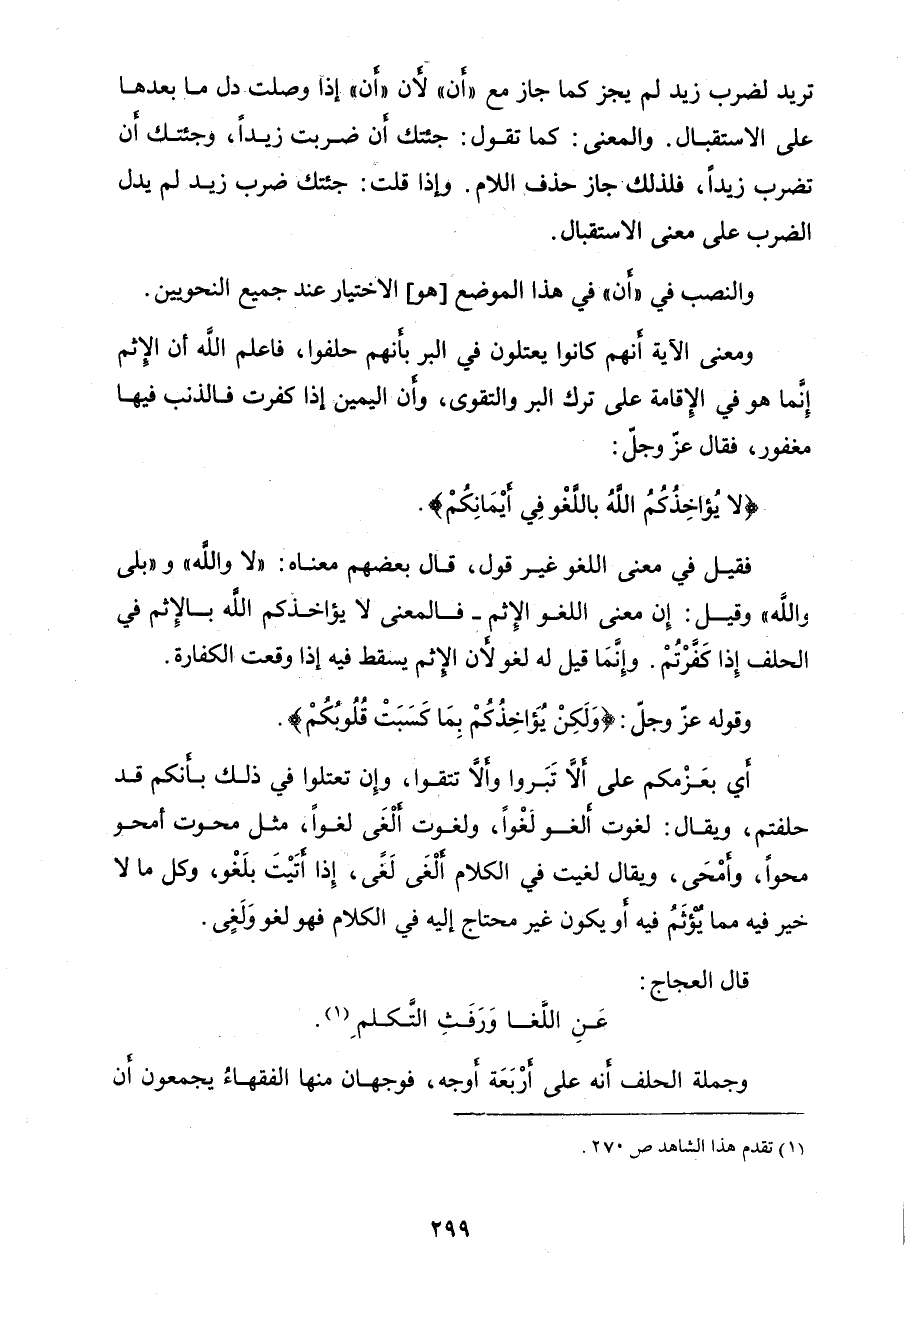 تريد لضرب زيد لم يجز كما جاز مع «أن» لأن «أن» إذا وصلت دل ما بعدها
على الاستقبال. والمعنى: كما تقول: جئتك أن ضربت زيداً، وجئتك أن
تضرب زيداً، فلذلك جاز حذف اللام. وإذا قلت: جئتك ضرب زيد لم يدل
الضرب على معنى الاستقبال.
والنصب في «أن» في هذا الموضع [هو] الاختيار عند جميع النحويين.
ومعنى الآية أنهم كانوا يعتلون في البر بأنهم حلفوا، فاعلم الله أن الإثم
إنَّما هو في الإقامة على ترك البر والتقوى، وأن اليمين إذا كفرت فالذنب فيها
مغفور، فقال عزّ وجلّ:
﴿لا يُؤاخِذُكُمُ اللَّهُ باللَّغْوِ فِي أَيْمَانِكُمْ﴾.
فقيل في معنى اللغو غير قول، قال بعضهم معناه: «لا واللَّه» و «بلى
واللَّه» وقيل: إن معنى اللغو الإثم - فالمعنى لا يؤاخذكم الله بالإثم في
الحلف إذا كَفَّرْتُمْ. وإنَّمَا قيل له لغو لأن الإثم يسقط فيه إذا وقعت الكفارة.
وقوله عزّ وجلّ: ﴿وَلَكِنْ يُؤَاخِذُكُمْ بِمَا كَسَبَتْ قُلُوبُكُمْ﴾.
أي بعَزْمكم على ألاَّ تَبَروا وألاَّ تتقوا، وإن تعتلوا في ذلك بأنكم قد
حلفتم، ويقال: لغوت ألغو لَغْواً، ولغوت أَلْغَى لغواً، مثل محوت أمحو
محواً، وأَمْحَى، ويقال لغيت في الكلام أَلْغَى لَغًى، إذا أَتَيْتَ بلَغْو، وكل ما لا
خير فيه مما يُؤْثَمُ فيه أو يكون غير محتاج إليه في الكلام فهو لغو وَلَغًى.
قال العجاج:
عَنِ اللَّغَا وَرَفَثِ التَّكَلمِ(١).
وجملة الحلف أنه على أَرْبَعَة أوجه، فوجهان منها الفقهاءُ يجمعون أن
(١) تقدم هذا الشاهد ص ٢٧٠.
٢٩٩